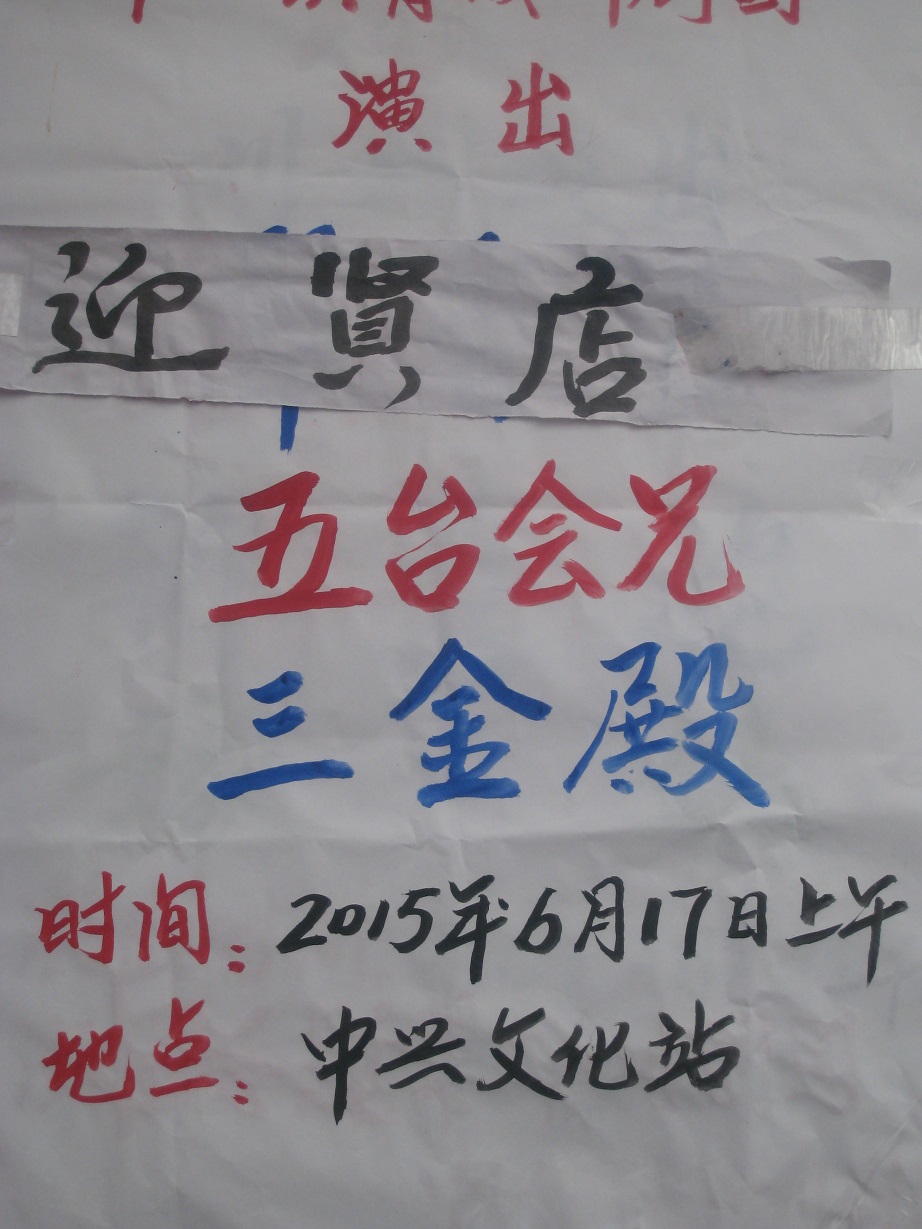 演出
迎贤店
五台会兄
三金殿
时间:2015年6月17日上午
地点:中兴文化站